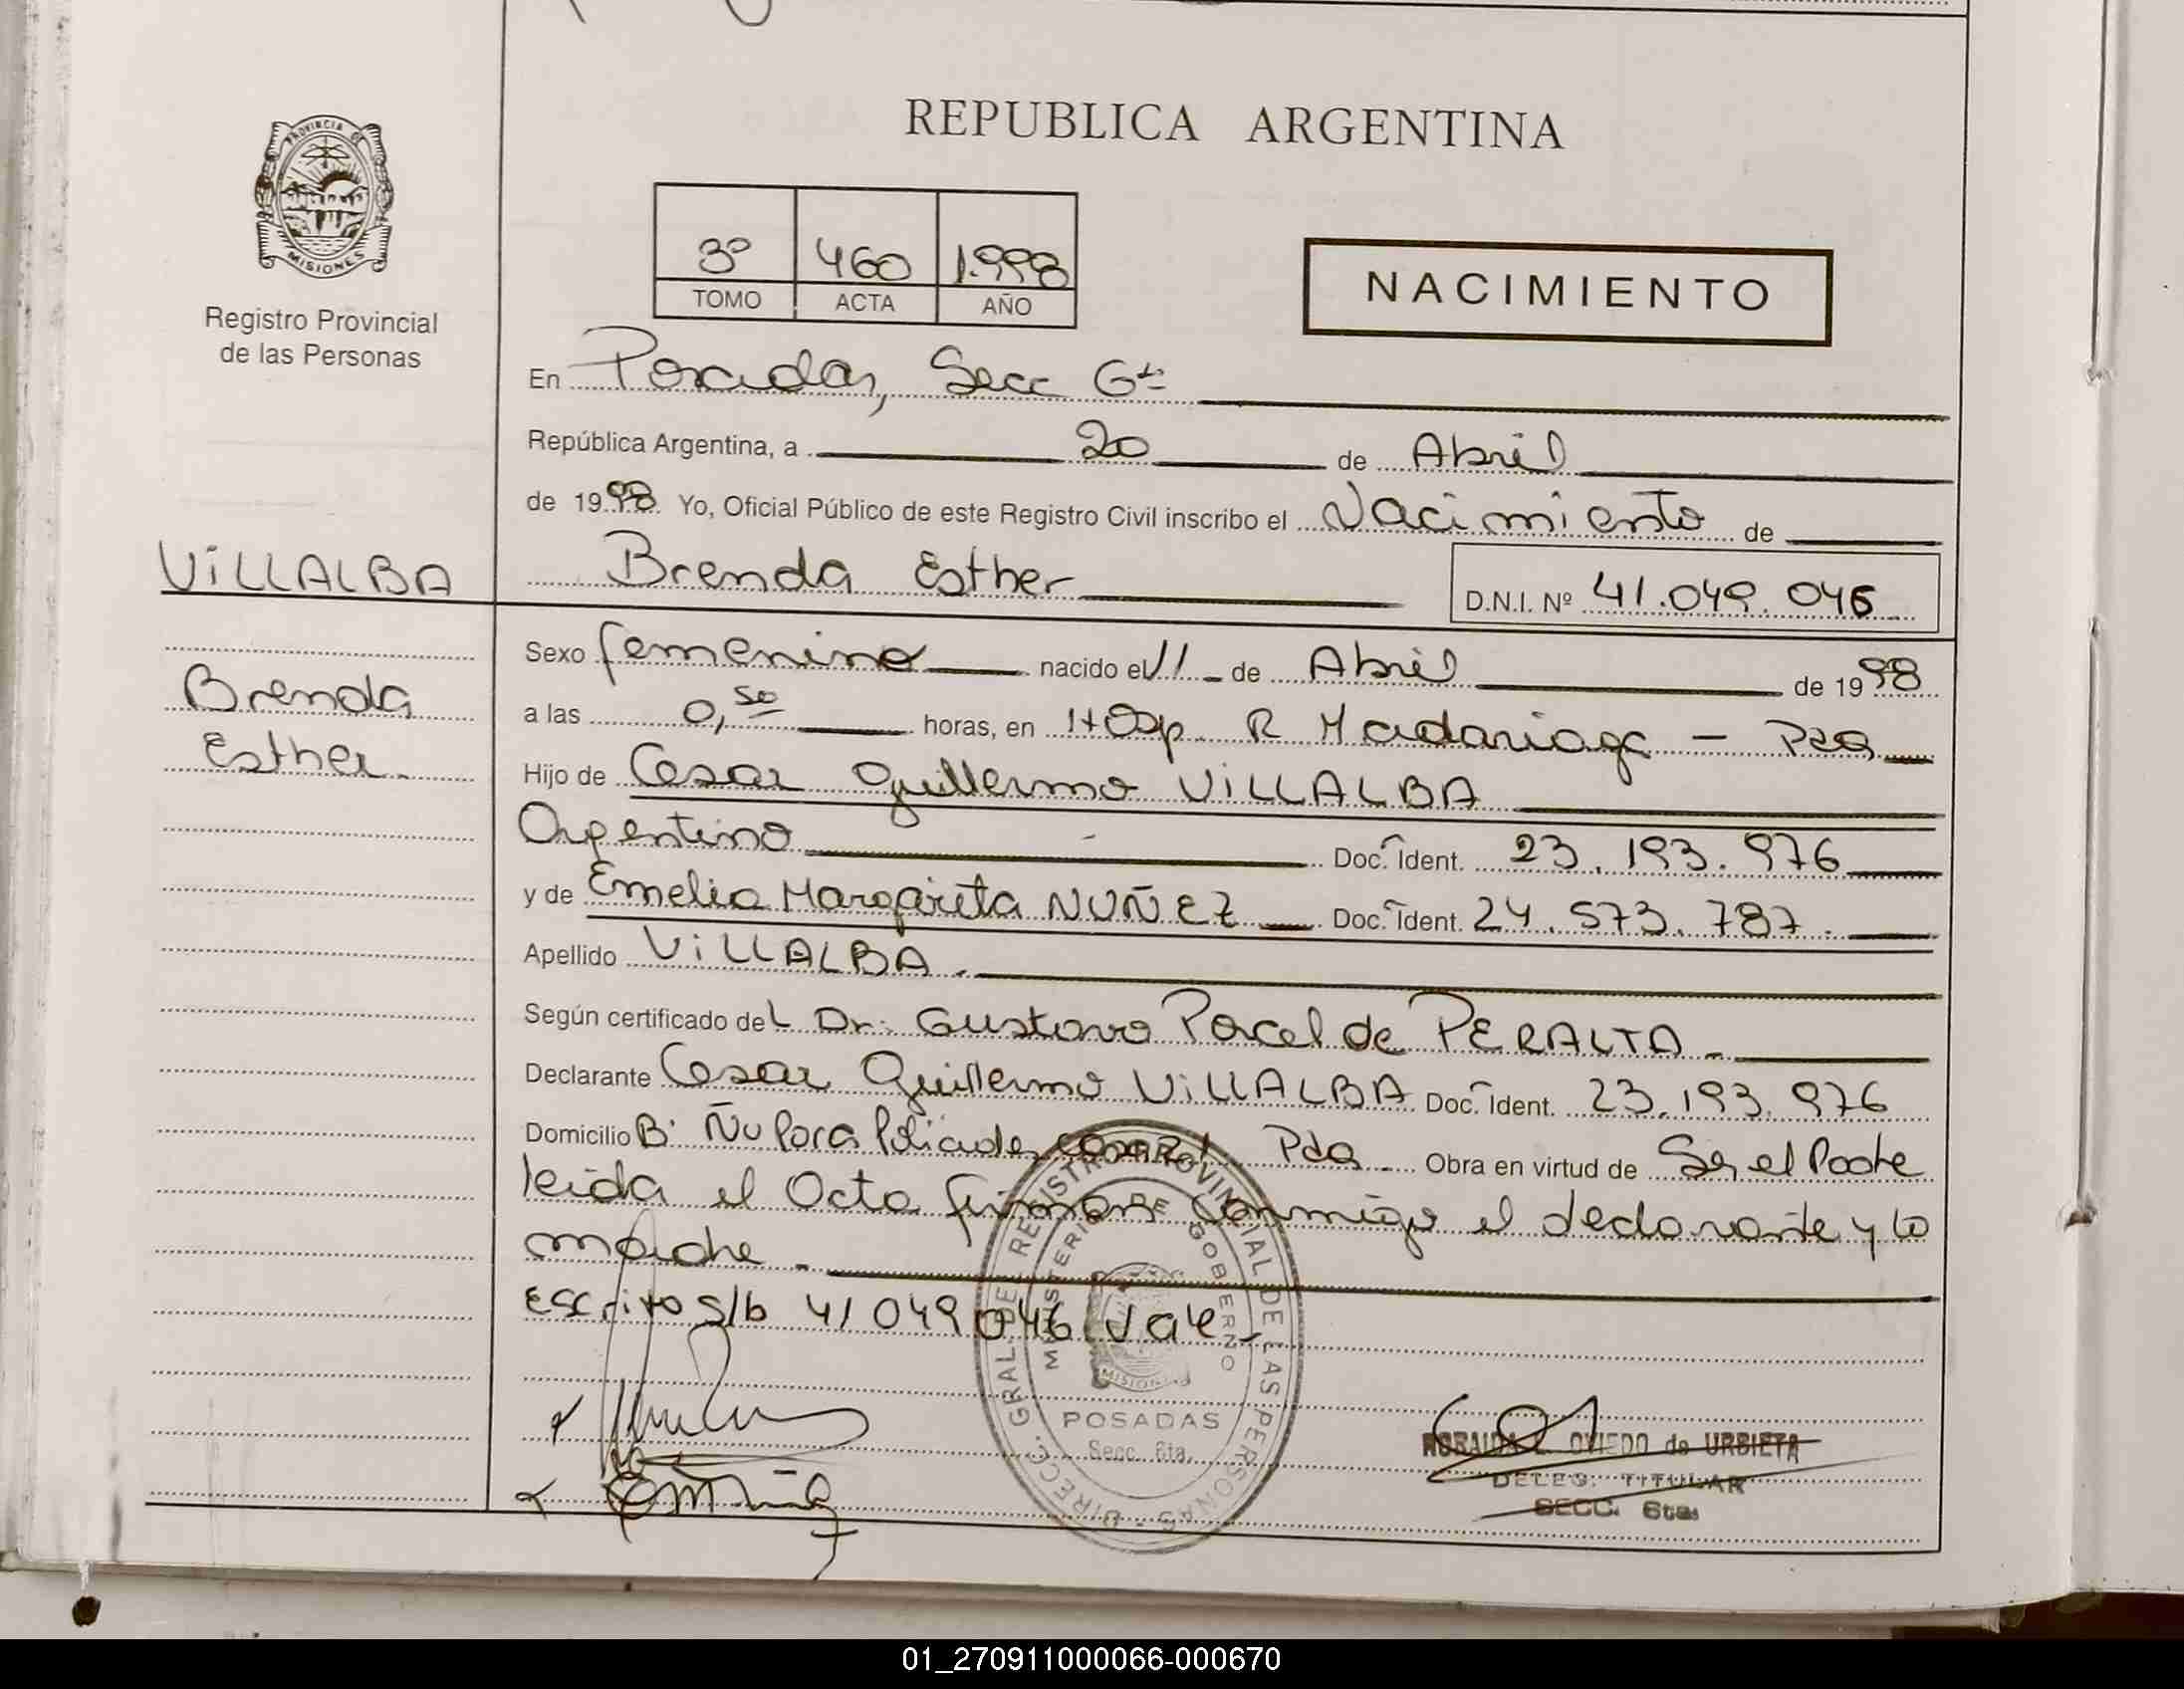 REPUBLICA ARGENTINA
PROVINCIA DE
MISIONES
Registro Provincial
de las Personas
3º 460 1.998
TOMO ACTA AÑO
NACIMIENTO
En Posadas, Secc 6ta
República Argentina, a 20 de Abril
de 1998 Yo, Oficial Público de este Registro Civil inscribo el Nacimiento de
VILLALBA
Brenda Esther
D.N.I. Nº 41.049.046
Brenda
Esther
Sexo femenino nacido el 11 de Abril de 1998
a las 0,50 horas, en Hosp R Madariaga - Pdas
Hijo de Cesar Guillermo VILLALBA
Argentino Doc. Ident. 23.193.976
y de Emelia Margarita NUÑEZ Doc. Ident. 24.573.787.
Apellido VILLALBA.
Según certificado del Dr: Gustavo Porcel de PERALTA
Declarante Cesar Guillermo VILLALBA Doc. Ident. 23.193.976
Domicilio Bº Ñu Pora Pdas Obra en virtud de Ser el Padre
leida el Acta firman conmigo el declarante y la
madre.
Escrito s/b 41 049 046 Vale.
DIRECC. GRAL. DEL REGISTRO PROVINCIAL DE LAS PERSONAS
MINISTERIO DE GOBIERNO
MISIONES
POSADAS
Secc. 6ta.
OVIEDO de URBIETA
DELEG. TITULAR
SECC. 6ta.
01_270911000066-000670